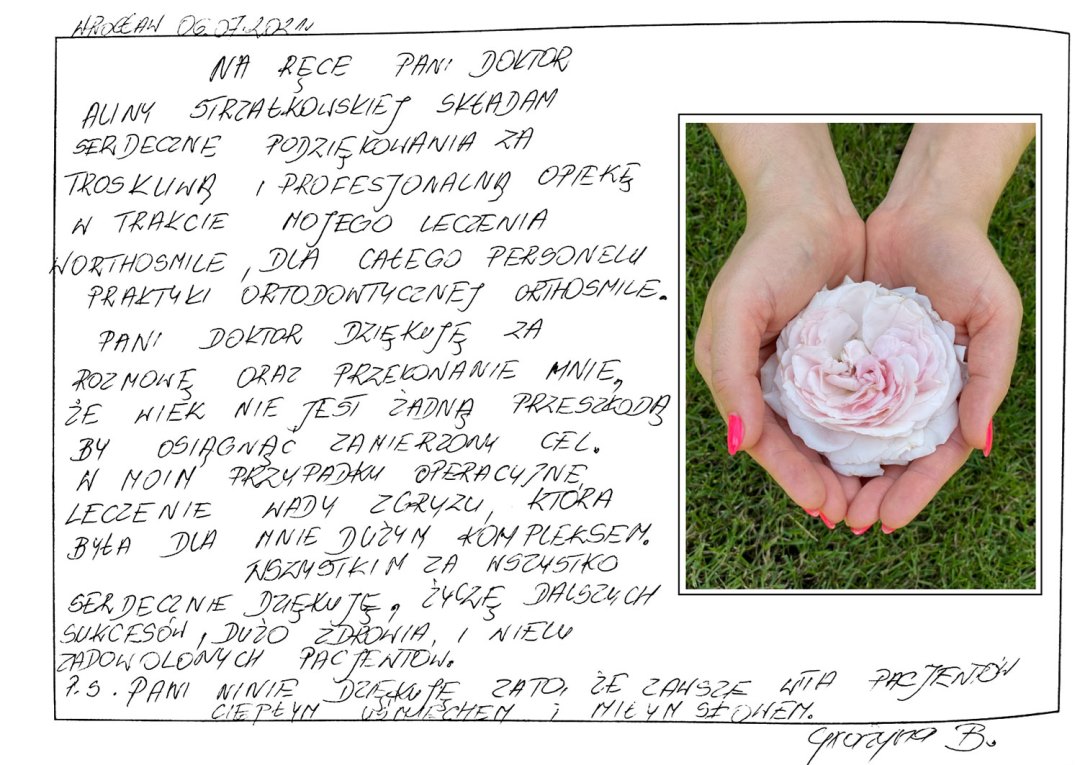 WROCŁAW 06.07.2021r
NA RĘCE PANI DOKTOR
ALINY STRZAŁKOWSKIEJ SKŁADAM
SERDECZNE PODZIĘKOWANIA ZA
TROSKLIWĄ I PROFESJONALNĄ OPIEKĘ
W TRAKCIE MOJEGO LECZENIA
W ORTHOSMILE, DLA CAŁEGO PERSONELU
PRAKTYKI ORTODONTYCZNEJ ORTHOSMILE.
PANI DOKTOR DZIĘKUJĘ ZA
ROZMOWĘ ORAZ PRZEKONANIE MNIE,
ŻE WIEK NIE JEST ŻADNĄ PRZESZKODĄ
BY OSIĄGNĄĆ ZAMIERZONY CEL.
W MOIM PRZYPADKU OPERACYJNE
LECZENIE WADY ZGRYZU, KTÓRA
BYŁA DLA MNIE DUŻYM KOMPLEKSEM.
WSZYSTKIM ZA WSZYSTKO
SERDECZNIE DZIĘKUJĘ, ŻYCZĘ DALSZYCH
SUKCESÓW, DUŻO ZDROWIA, I WIELU
ZADOWOLONYCH PACJENTÓW.
P.S. PANI NINIE DZIĘKUJĘ ZA TO, ŻE ZAWSZE WITA PACJENTÓW
CIEPŁYM UŚMIECHEM I MIŁYM SŁOWEM.
Grażyna B.